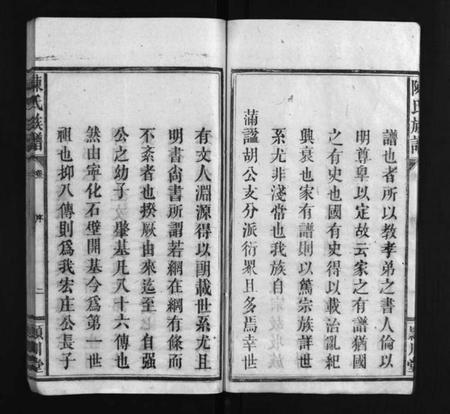 陳氏族譜
譜也者所以教孝弟之書人倫以
明尊卑以定故云家之有譜猶國
之有史也國有史得以載治亂紀
興衰也家有譜則以篤宗族詳世
系尤非淺當也我族自
蒲諡胡公支分派衍眾且多焉幸世
有文人淵源得以朗載世系尤且
明書尚書所謂若網在綱有條而
不紊者也揆厥由來迄至 自強
公之幼子 肇基凡八十六傳也
然由寧化石壁開基今為第一世
祖也抑八傳則為我宏庄公長子
陳氏族譜
卷 序
二
潁川堂